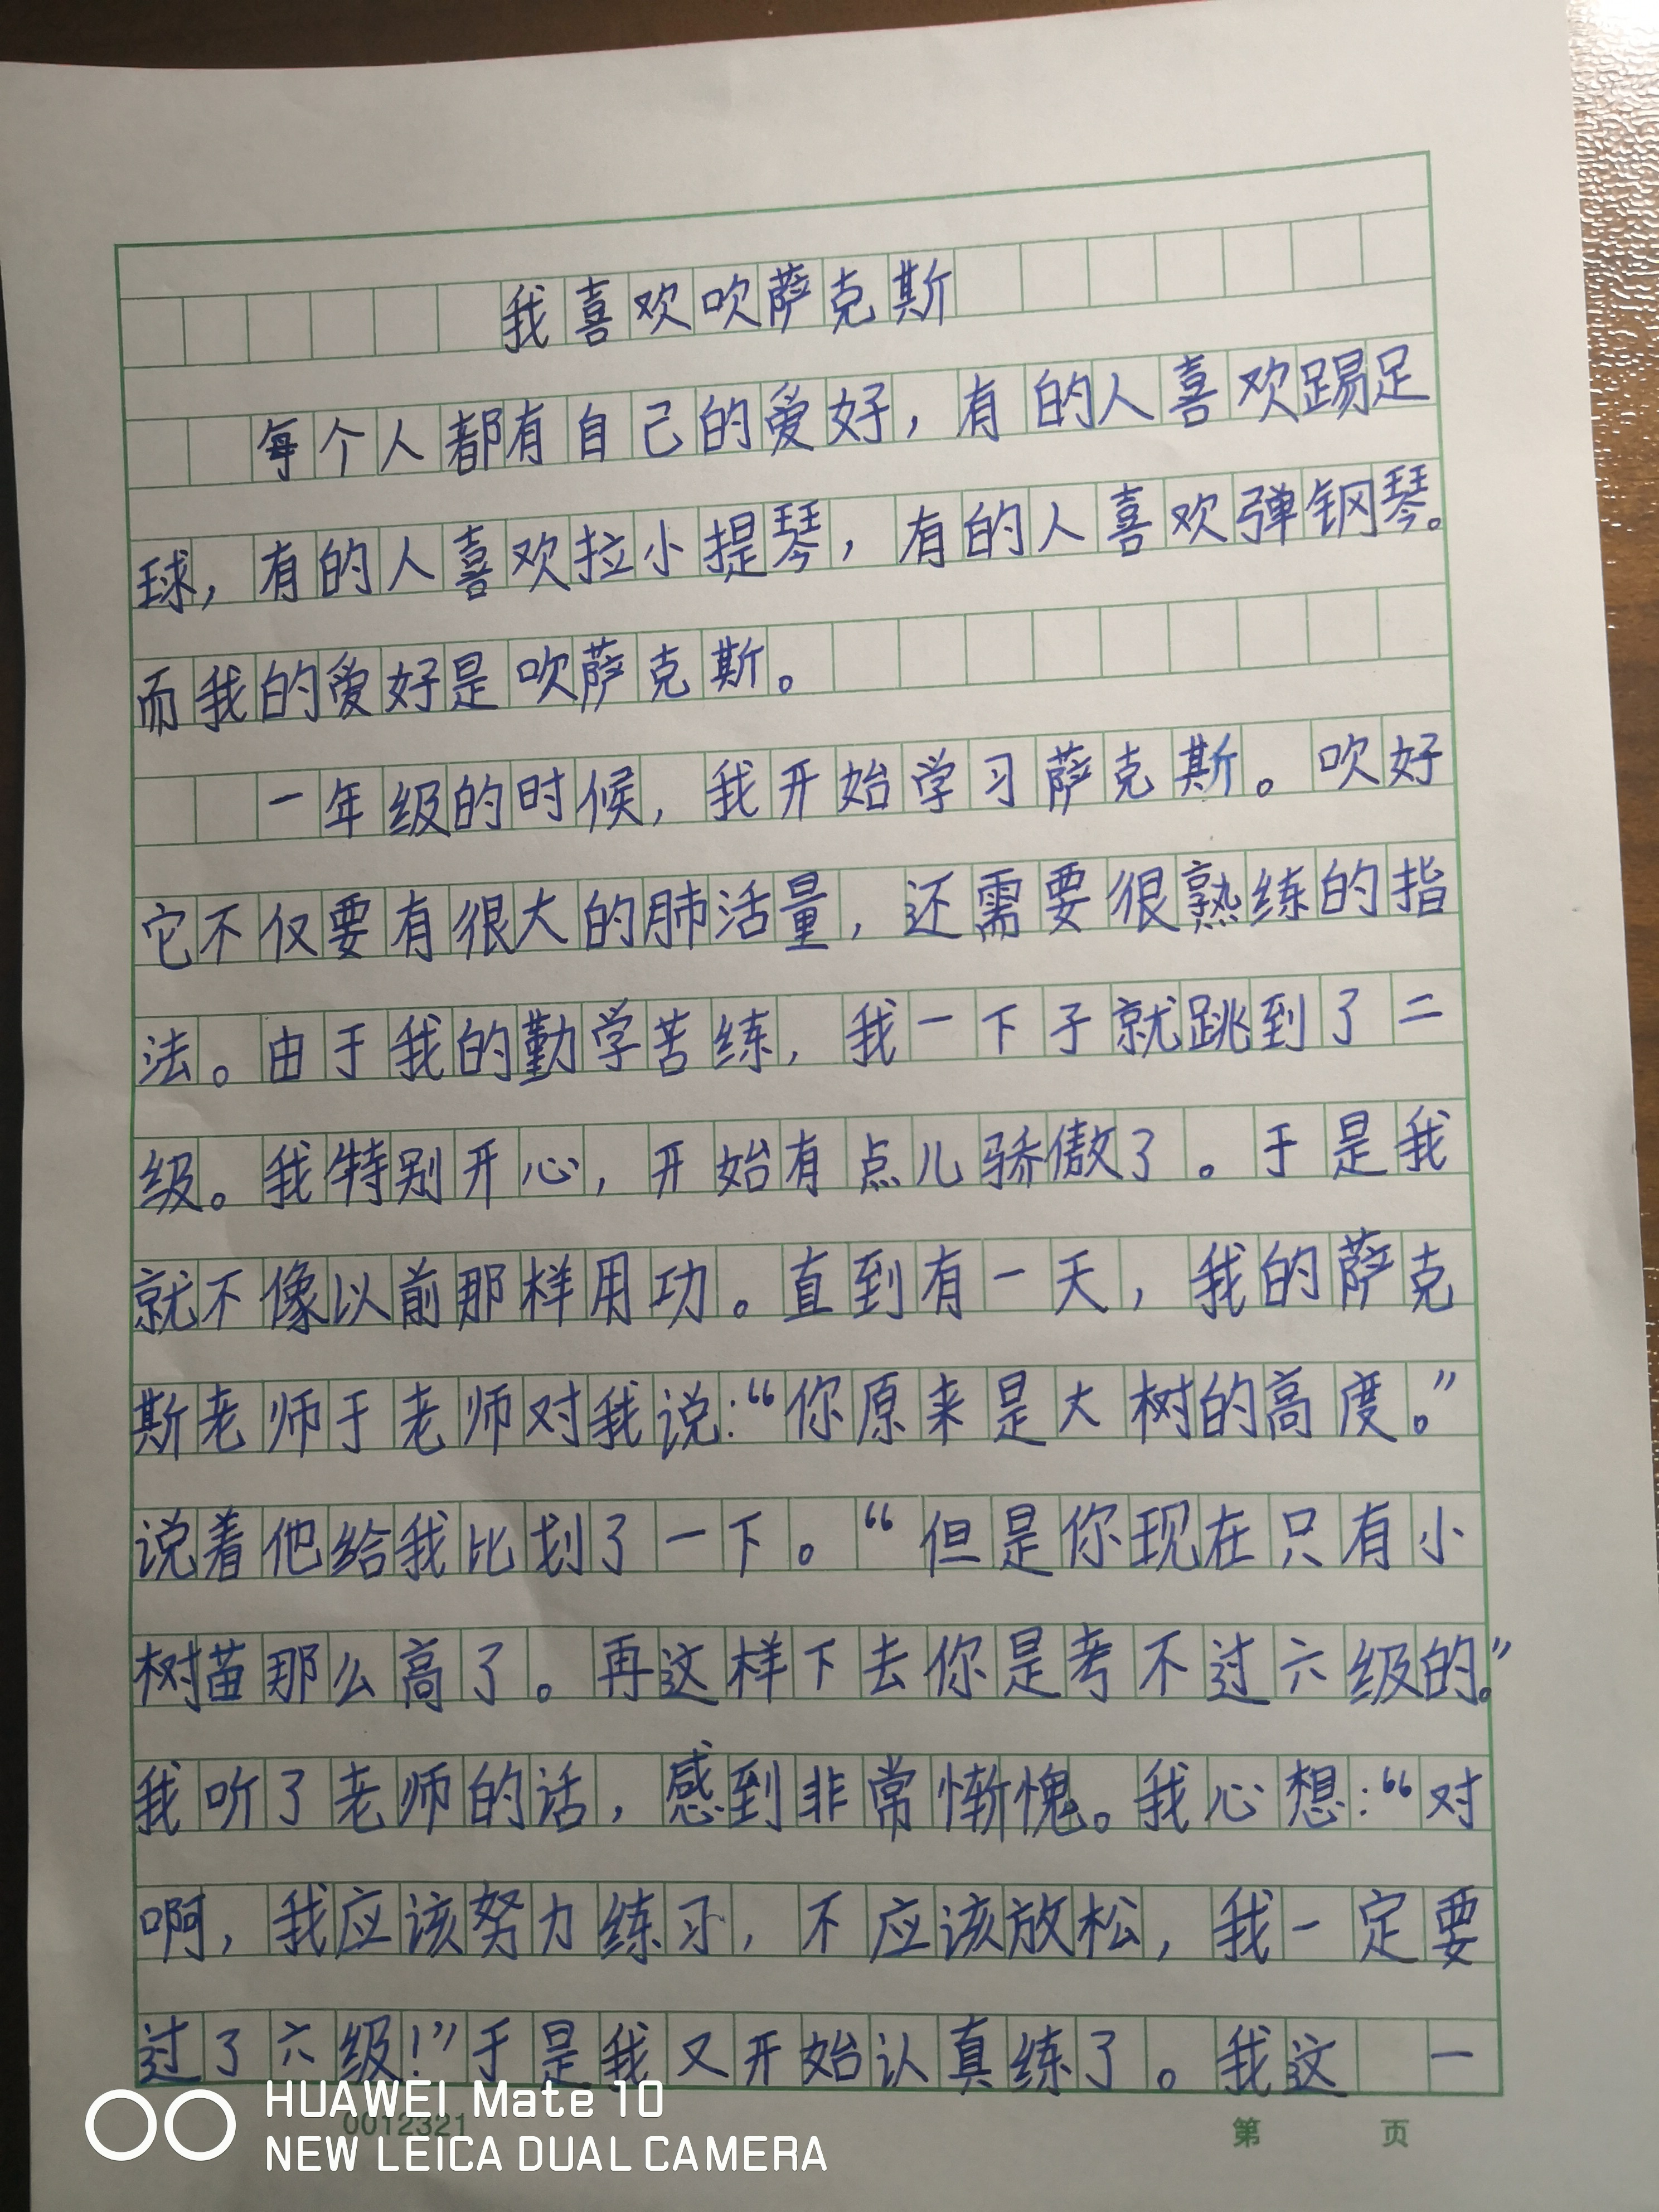 我喜欢吹萨克斯
每个人都有自己的爱好，有的人喜欢踢足
球，有的人喜欢拉小提琴，有的人喜欢弹钢琴。
而我的爱好是吹萨克斯。
一年级的时候，我开始学习萨克斯。吹好
它不仅要有很大的肺活量，还需要很熟练的指
法。由于我的勤学苦练，我一下子就跳到了二
级。我特别开心，开始有点儿骄傲了。于是我
就不像以前那样用功。直到有一天，我的萨克
斯老师于老师对我说：“你原来是大树的高度。”
说着他给我比划了一下。“但是你现在只有小
树苗那么高了。再这样下去你是考不过六级的。”
我听了老师的话，感到非常惭愧。我心想：“对
啊，我应该努力练习，不应该放松，我一定要
过了六级！”于是我又开始认真练了。我这 一
0012321
第 页
HUAWEI Mate 10
NEW LEICA DUAL CAMERA